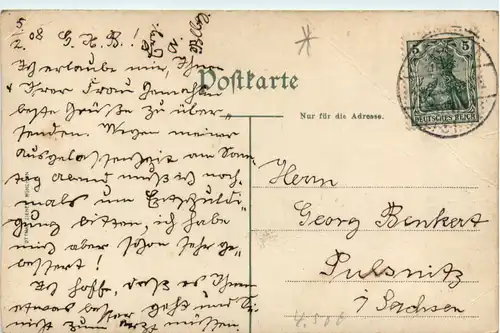 5/2. 08 G. H. B.!
Ich erlaube mir, Ihnen
Ihrer Frau Gemahlin
beste Grüße zu über-
senden. Wegen meiner
Ausgelassenheit am Sonn-
tag Abend muß ich noch-
mals um Entschuldi-
gung bitten, ich habe
mich aber schon sehr ge-
bessert!
Ich hoffe, daß es Ihnen
etwas besser geht und Sie
nicht zum Arzt müssen
Postkarte
Nur für die Adresse.
5 5
DEUTSCHES REICH
Herrn
Georg Benkert
Pulsnitz
i/Sachsen